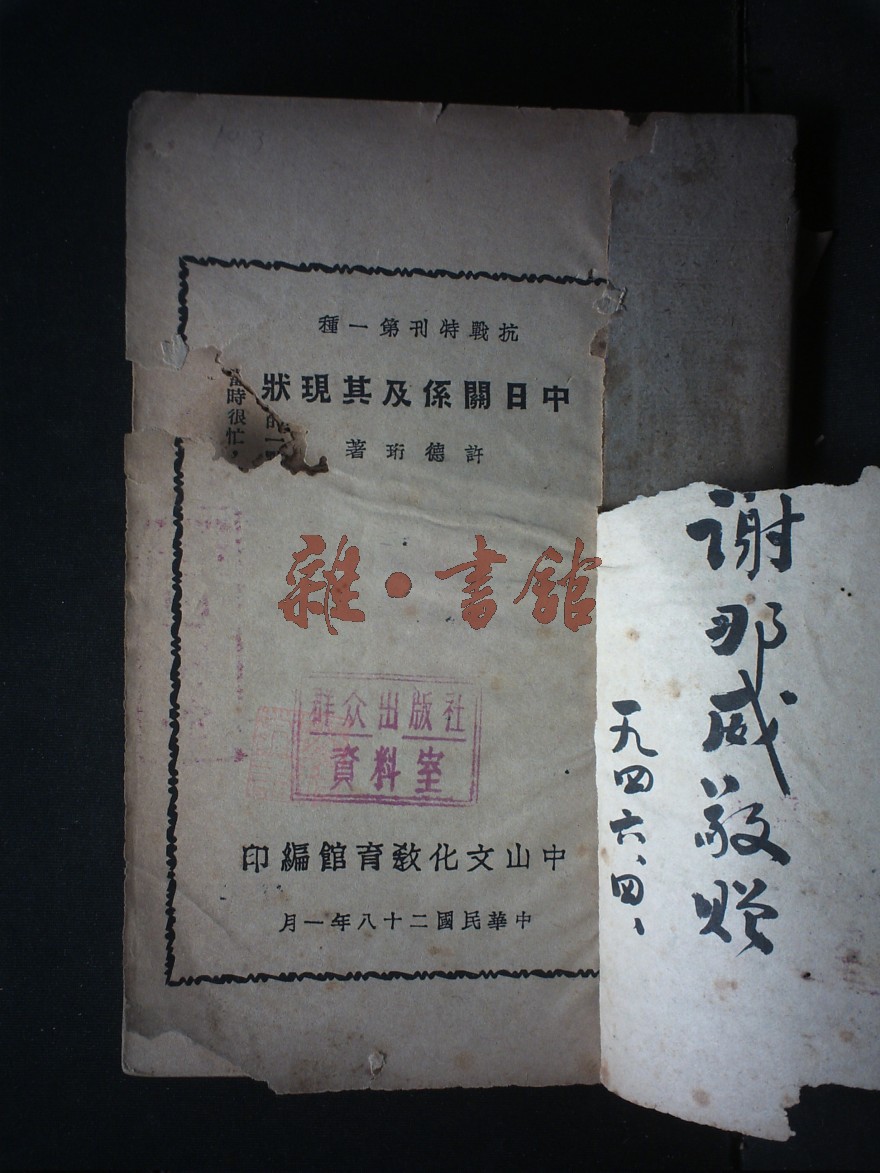 抗戰特刊第一種
中日關係及其現狀
許德珩著
當時很忙，
的一
雜·書館
群众出版社
資料室
中山文化教育館編印
中華民國二十八年一月
谢那威敬赠
一九四六、四、